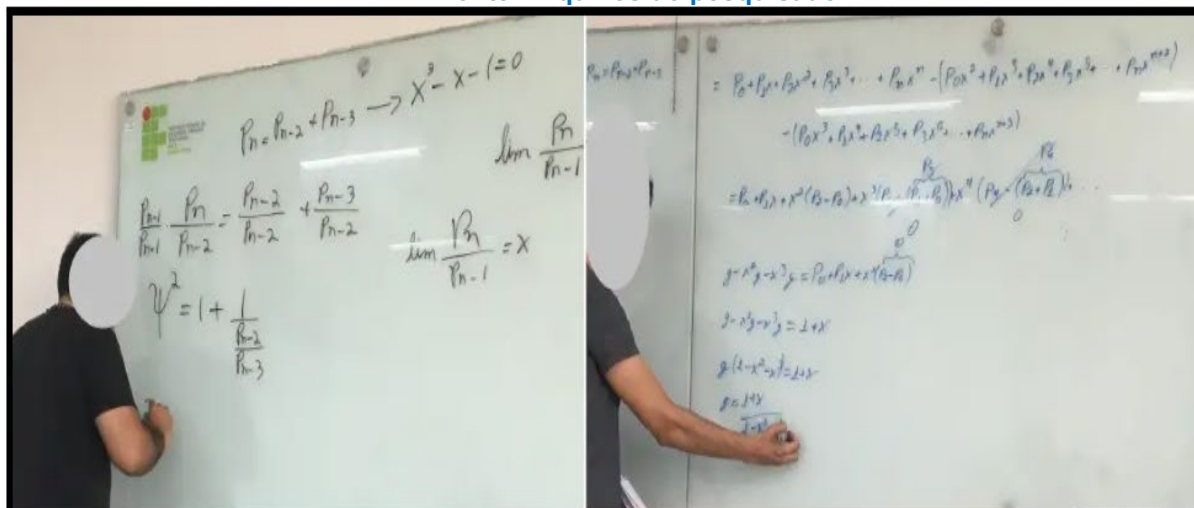 Pₙ = Pₙ₋₂ + Pₙ₋₃ → x³ - x - 1 = 0
lim Pₙ/Pₙ₋₁
Pₙ₋₁/Pₙ₋₁ · Pₙ/Pₙ₋₂ = Pₙ₋₂/Pₙ₋₂ + Pₙ₋₃/Pₙ₋₂
lim Pₙ/Pₙ₋₁ = x
ψ² = 1 + 1/(Pₙ₋₂/Pₙ₋₃)
Pₙ = Pₙ₋₂ + Pₙ₋₃
= P₀ + P₁x + P₂x² + P₃x³ + ... + Pₙxⁿ - (P₀x² + P₁x³ + P₂x⁴ + P₃x⁵ + ... + Pₙxⁿ⁺²)
- (P₀x³ + P₁x⁴ + P₂x⁵ + P₃x⁶ + ... + Pₙxⁿ⁺³)
g - x²g - x³g = P₀ + P₁x + x²(P₂ - P₀)
g - x²g - x³g = 1 + x
g(1 - x² - x³) = 1 + x
g = 1 + x